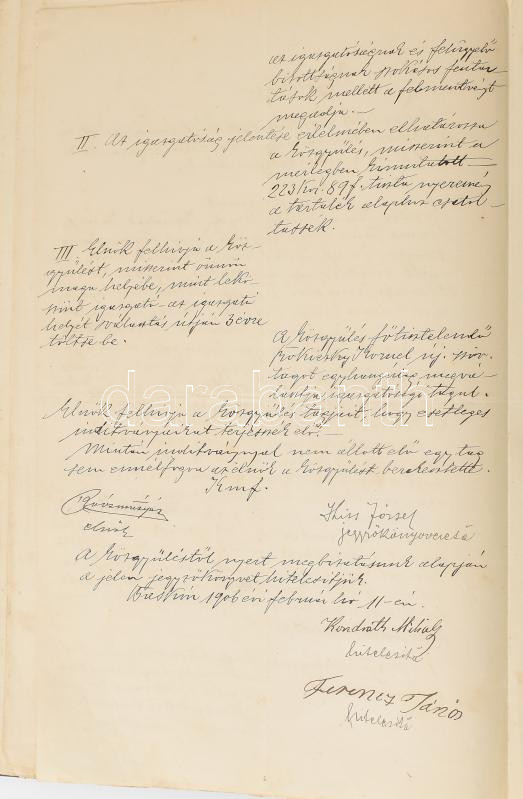 az igazgatóságnak és felügyelő
bizottságnak szokásos fentar-
tások mellett a felmentvényt
megadja. —
II. Az igazgatóság jelentése értelmében elhatározza
a közgyűlés, miszerint a
mérlegben kimutatott
223 kor. 89 f. tiszta nyereség
a tartalék alaphoz csatol-
tassék.
III Elnök felhívja a köz-
gyűlést, miszerint önnön
maga helyébe, mint leko-
szönt igazgató az igazgató
helyét választás útján 3 évre
töltse be.
A közgyűlés főtisztelendő
Kornél új. szöv.
tagot egyhangulag megvá-
lasztja igazgatósági tagul.
Elnök felhívja a közgyűlés tagjait, hogy esetleges
inditványaikat terjesszék elő. —
Miután inditvánnyal nem állott elő egy tag
sem ennélfogva az elnök a közgyűlést berekesztette.
Kmf.
elnök
Kiss József
jegyzőkönyvvezető
A közgyűléstől nyert megbizatásunk alapján
a jelen jegyzőkönyvet hitelesitjük.
1906 évi február hó 11-én.
Kondráth Mihály
hitelesitő
Ferencz János
hitelesitő
darabanth